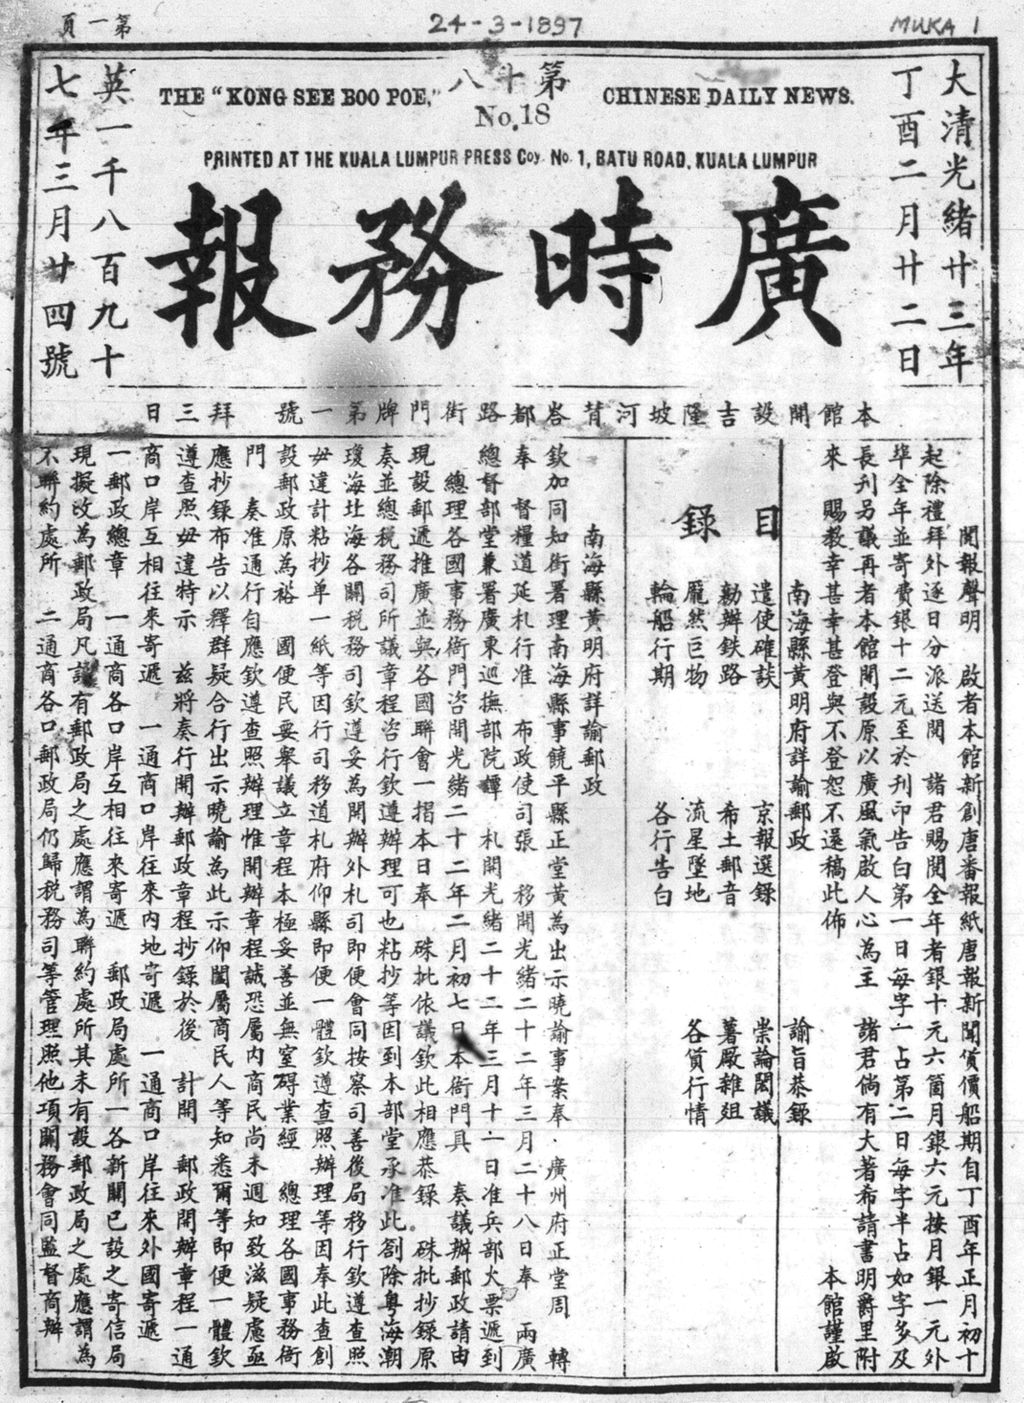 第一頁
24-3-1897
MUKA 1
大清光緒廿三年
丁酉二月廿二日
第十八
THE "KONG SEE BOO POE," CHINESE DAILY NEWS.
No. 18
PRINTED AT THE KUALA LUMPUR PRESS Coy. No. 1, BATU ROAD, KUALA LUMPUR
廣時務報
英一千八百九十
七年三月廿四號
本館開設吉隆坡河背峇都路街門牌第一號 拜三日
閱報聲明 啟者本館新創唐番報紙唐報新聞貨價船期自丁酉年正月初十
起除禮拜外逐日分派送閱 諸君賜閱全年者銀十元六箇月銀六元按月銀一元外
埠全年並寄費銀十二元至於刊印告白第一日每字一占第二日每字半占如字多及
長刊另議再者本館開設原以廣風氣啟人心為主 諸君倘有大著希請書明爵里附
來 賜教幸甚幸甚登與不登恕不還稿此佈 本館謹啟
目錄
南海縣黃明府詳諭郵政 諭旨恭錄
遣使確談 京報選錄 崇論閎議
勸辦鉄路 希土郵音 著厰雜俎
龐然巨物 流星墜地 各貨行情
輪船行期 各行告白
南海縣黃明府詳諭郵政
欽加同知銜署理南海縣事饒平縣正堂黃為出示曉諭事案奉 廣州府正堂周 轉
奉 督糧道延札行准 布政使司張 移開光緒二十二年三月二十八日奉 兩廣
總督部堂兼署廣東巡撫部院譚 札開光緒二十二年三月十一日准兵部火票遞到
總理各國事務衙門咨開光緒二十二年二月初七日本衙門具 奏議辦郵政請由
現設郵遞推廣並與各國聯會一摺本日奉 硃批依議欽此相應恭錄 硃批抄錄原
奏並總税務司所議章程咨行欽遵辦理可也粘抄等因到本部堂承准此劄除粵海潮
瓊海北海各關税務司欽遵妥為開辦外札司即便會同按察司善後局移行欽遵查照
毋違計粘抄单一紙等因行司移道札府仰縣即便一體欽遵查照辦理等因奉此查創
設郵政原為裕 國便民要舉議立章程本極妥善並無窒碍業經 總理各國事務衙
門 奏准通行自應欽遵查照辦理惟開辦章程誠恐屬內商民尚未週知致滋疑慮亟
應抄錄布告以釋群疑合行出示曉諭為此示仰闔屬商民人等知悉爾等即便一體欽
遵查照毋違特示 茲將奏行開辦郵政章程抄錄於後 計開 郵政開辦章程一通
商口岸互相往來寄遞 一通商口岸往來內地寄遞 一通商口岸往來外國寄遞
一郵政總章 一通商各口岸互相往來寄遞 郵政局處所一各新開已設之寄信局
現擬改為郵政局凡設有郵政局之處應謂為聯約處所其未有設郵政局之處應謂為
不聯約處所 二通商各口郵政局仍歸税務司等管理照他項關務會同監督商辦